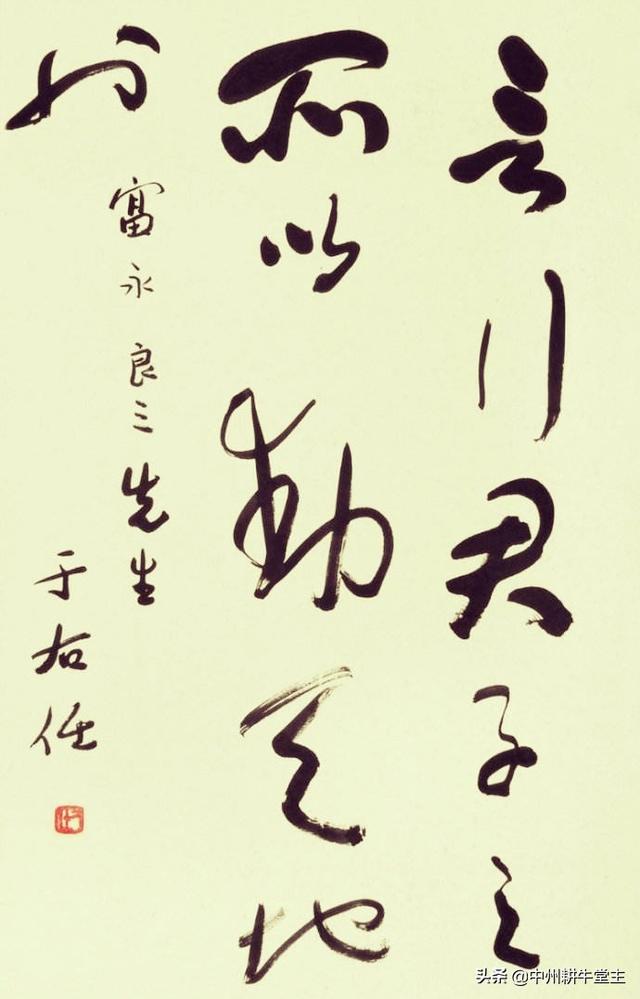 言行君子之
所以動天地
也
富永良三先生
于右任
头条 @中州耕牛堂主